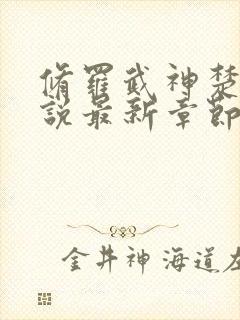 脩罷武神楚
說最新章節
金井神海道左